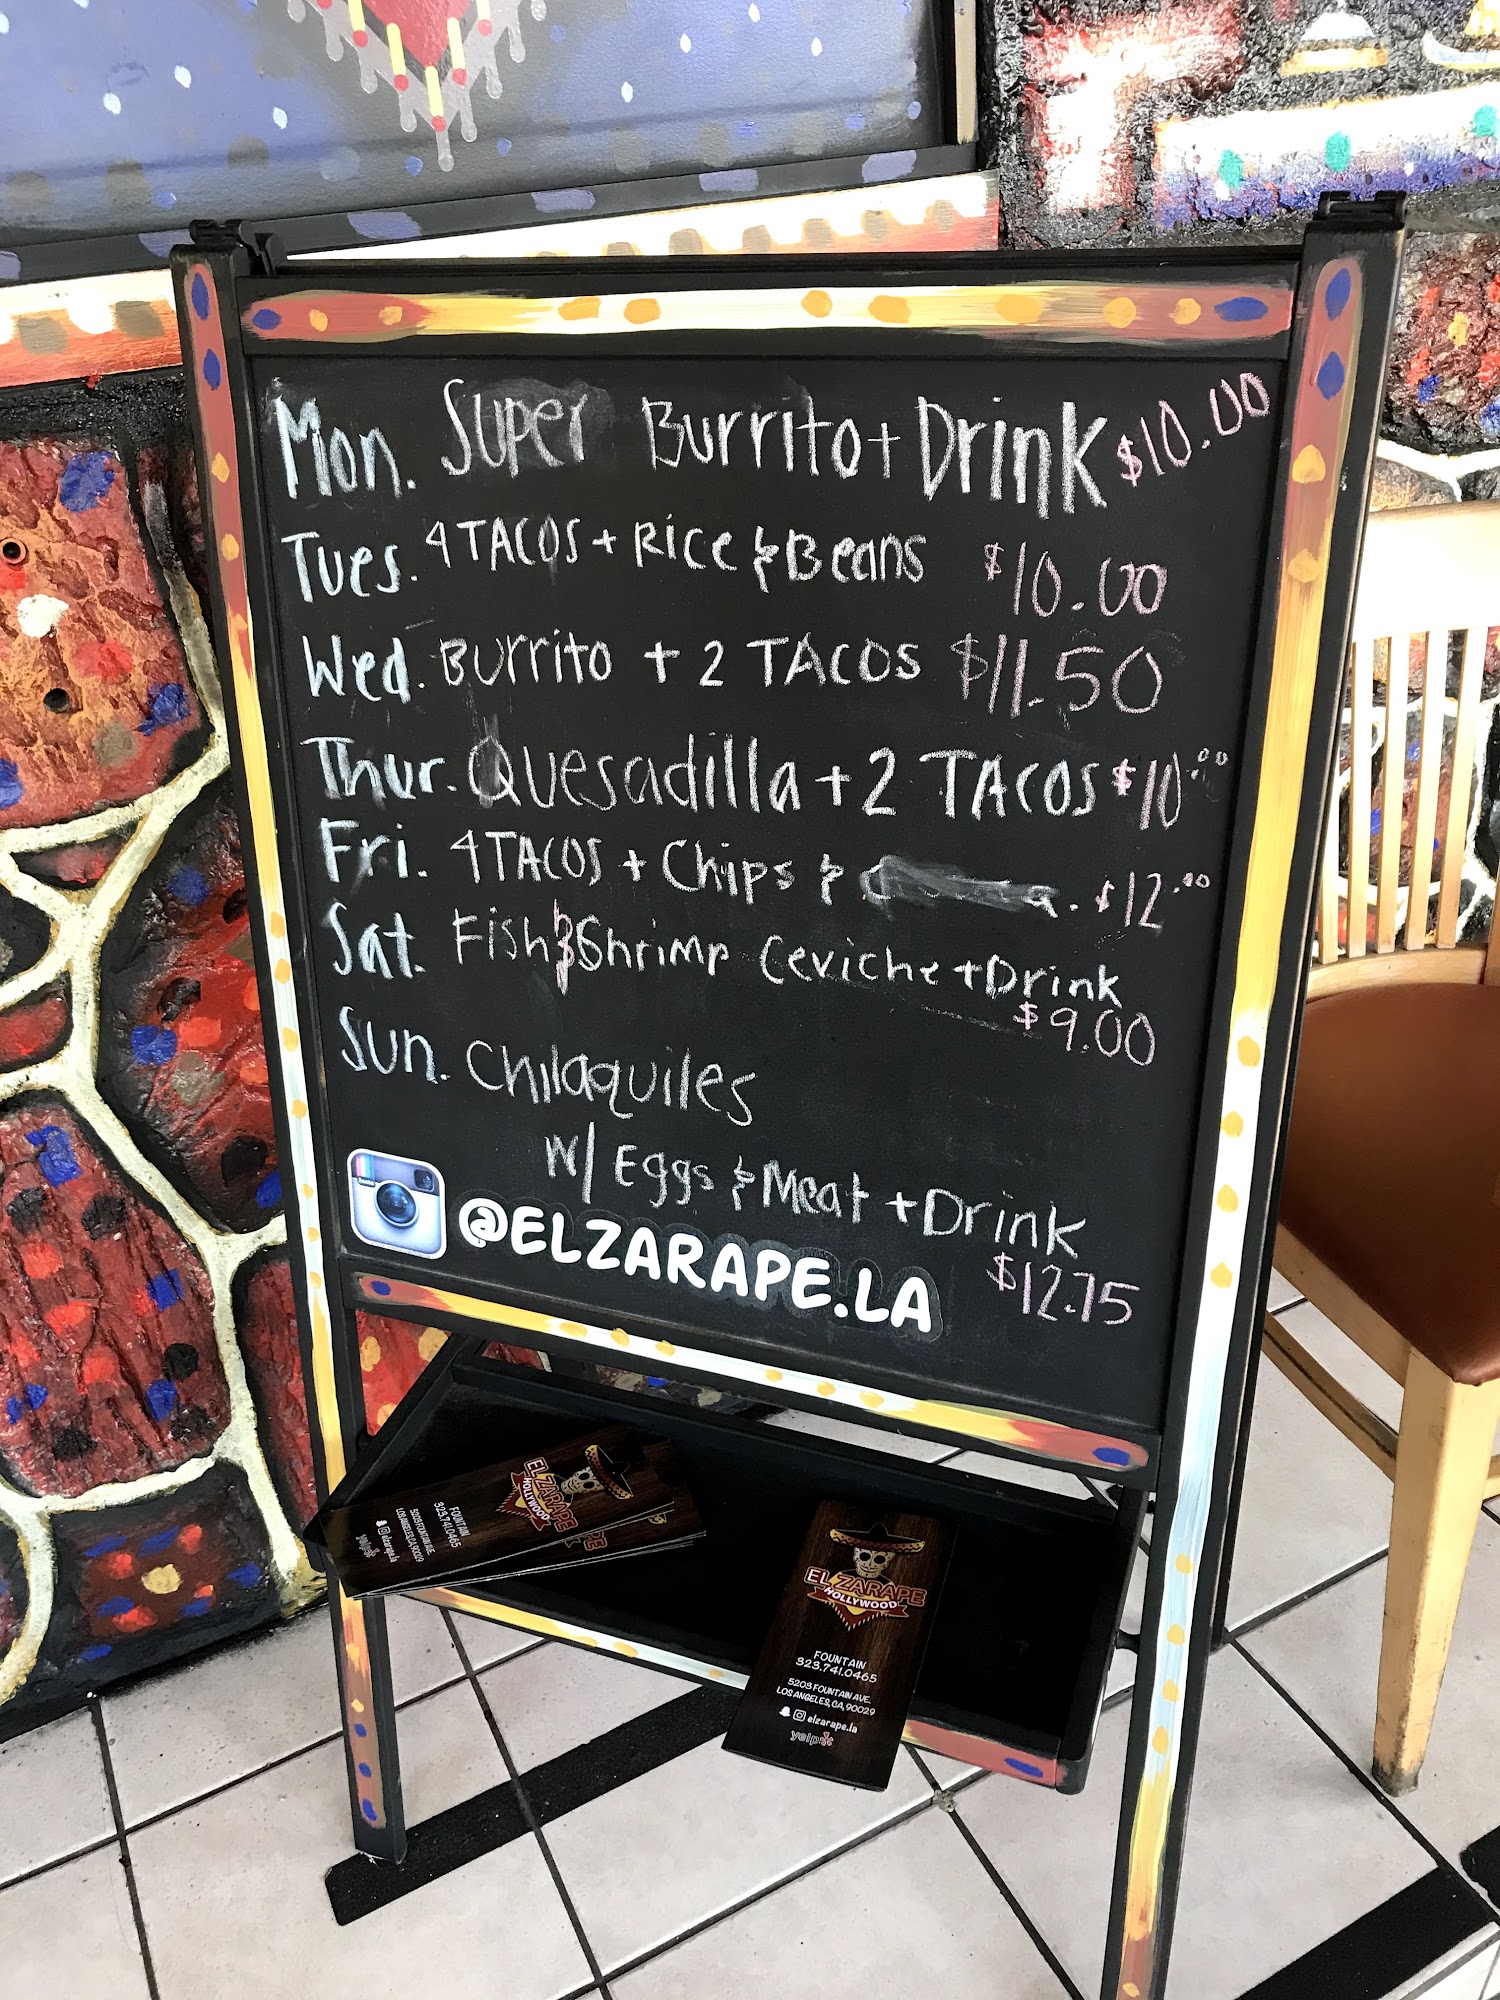 Mon. Super Burrito + Drink $10.00
Tues. 4 TACOS + Rice & Beans $10.00
Wed. Burrito + 2 TACOS $11.50
Thur. Quesadilla + 2 TACOS $10.00
Fri. 4 TACOS + Chips & $12.00
Sat. Fish & Shrimp Ceviche + Drink
$9.00
Sun. Chilaquiles
w/ Eggs & Meat + Drink
$12.75
@ELZARAPE.LA
EL ZARAPE
HOLLYWOOD
FOUNTAIN
323.741.0465
5203 FOUNTAIN AVE.
LOS ANGELES, CA, 90029
elzarape.la
yelp
EL ZARAPE
HOLLYWOOD
FOUNTAIN
323.741.0465
5203 FOUNTAIN AVE.
LOS ANGELES, CA, 90029
elzarape.la
yelp